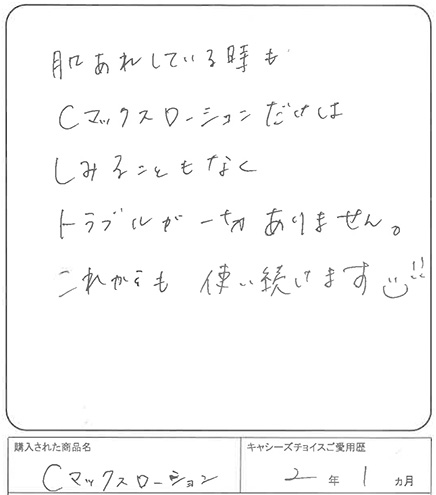 肌あれしている時も
Cマックスローションだけは
しみることもなく
トラブルが一切ありません。
これからも 使い続けます
購入された商品名
Cマックスローション
キャシーズチョイスご愛用歴
2 年 1 ヵ月